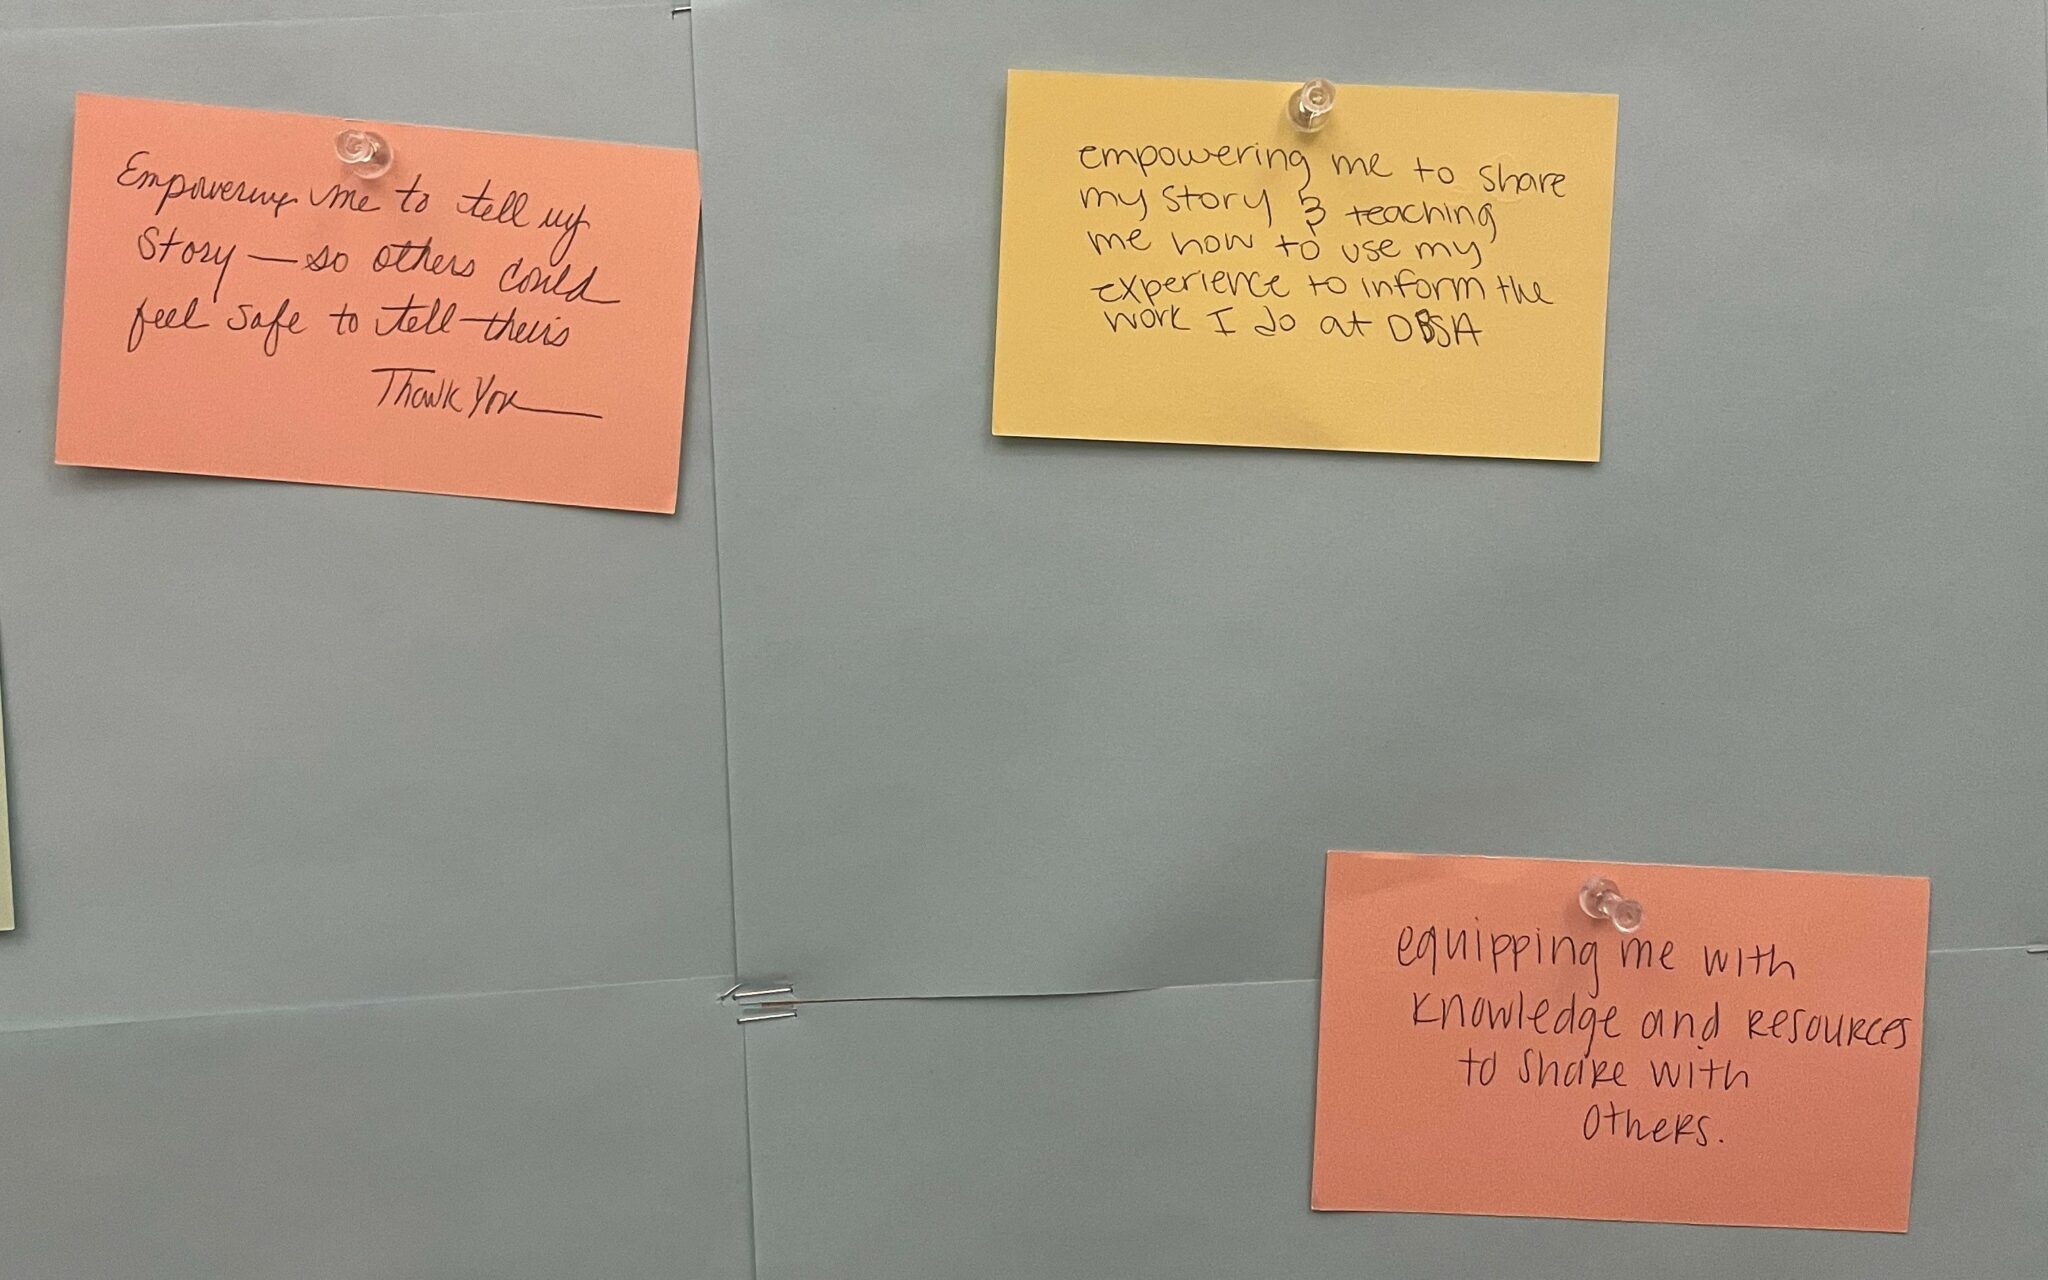 Empowering me to tell my
story — so others could
feel safe to tell theirs
Thank You
empowering me to share
my story & teaching
me how to use my
experience to inform the
work I do at DBSA
equipping me with
knowledge and resources
to share with
others.